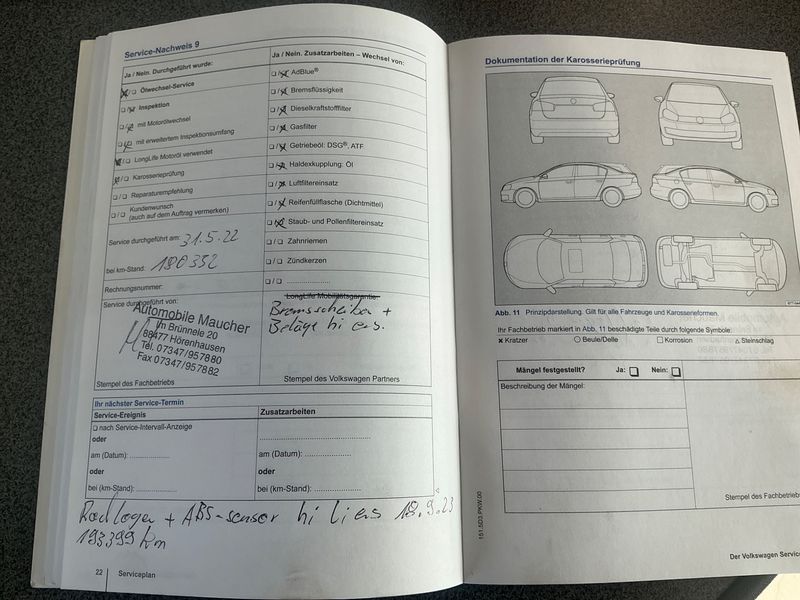 Service-Nachweis 9
Ja / Nein. Durchgeführt wurde:
☒/☐ Ölwechsel-Service
☐/☒ Inspektion
☐/☒ mit Motorölwechsel
☐/☒ mit erweitertem Inspektionsumfang
☒/☐ LongLife Motoröl verwendet
☒/☐ Karosserieprüfung
☐/☐ Reparaturempfehlung
☐/☐ Kundenwunsch
(auch auf dem Auftrag vermerken)
Service durchgeführt am: 31.5.22
bei km-Stand: 180352
Rechnungsnummer:
Service durchgeführt von:
Automobile Maucher
Im Brünnele 20
88477 Hörenhausen
Tel. 07347/957880
Fax 07347/957882
Stempel des Fachbetriebs
Ja / Nein. Zusatzarbeiten – Wechsel von:
☐/☒ AdBlue®
☐/☒ Bremsflüssigkeit
☐/☒ Dieselkraftstofffilter
☐/☒ Gasfilter
☐/☒ Getriebeöl: DSG®, ATF
☐/☒ Haldexkupplung: Öl
☐/☒ Luftfiltereinsatz
☐/☒ Reifenfüllflasche (Dichtmittel)
☐/☒ Staub- und Pollenfiltereinsatz
☐/☐ Zahnriemen
☐/☐ Zündkerzen
☐/☐ ....................
LongLife Mobilitätsgarantie
Bremsscheiben +
Beläge hi ers.
Stempel des Volkswagen Partners
Ihr nächster Service-Termin
Service-Ereignis
☐ nach Service-Intervall-Anzeige
oder
am (Datum): ....................
oder
bei (km-Stand): ....................
Zusatzarbeiten
........................................
am (Datum): ....................
oder
bei (km-Stand): ....................
Radlager + ABS-sensor hi li ers 18.9.23
193399 km
22 Serviceplan
Dokumentation der Karosserieprüfung
Abb. 11 Prinzipdarstellung. Gilt für alle Fahrzeuge und Karosserieformen.
Ihr Fachbetrieb markiert in Abb. 11 beschädigte Teile durch folgende Symbole:
✕ Kratzer ○ Beule/Delle □ Korrosion △ Steinschlag
Mängel festgestellt? Ja: ☐ Nein: ☐
Beschreibung der Mängel:
Stempel des Fachbetriebs
151.5D3.PKW.00
Der Volkswagen Service